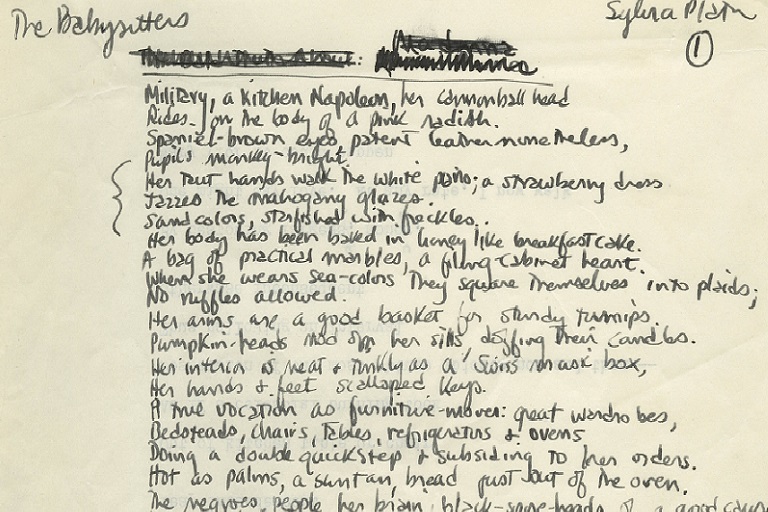 The Babysitters
Sylvia Plath
1
Military, a kitchen Napoleon, her cannonball head
Rides on the body of a pink radish.
Spaniel-brown eyes patent leather nonetheless,
Pupils monkey-bright.
Her taut hands walk the white; a strawberry dress
Jazzes the mahogany glazes.
Sandcolors, starfished with freckles.
Her body has been baked in honey like breakfast cake.
A bag of practical marbles, a filing cabinet heart.
When she wears sea-colors they square themselves into plaids;
No ruffles allowed.
Her arms are a good basket for sturdy turnips.
Pumpkin-heads nod on her sills, doffing their candles.
Her interior is neat & tinkly as a Swiss music box,
Her hands & feet scalloped keys.
A true vocation as furniture-mover: great wardrobes,
Bedsteads, chairs, tables, refrigerators & ovens
Doing a double quickstep & subsiding to her orders.
Hot as palms, a suntan, bread just out of the oven.
The negroes, people her brain, black-heads of a good